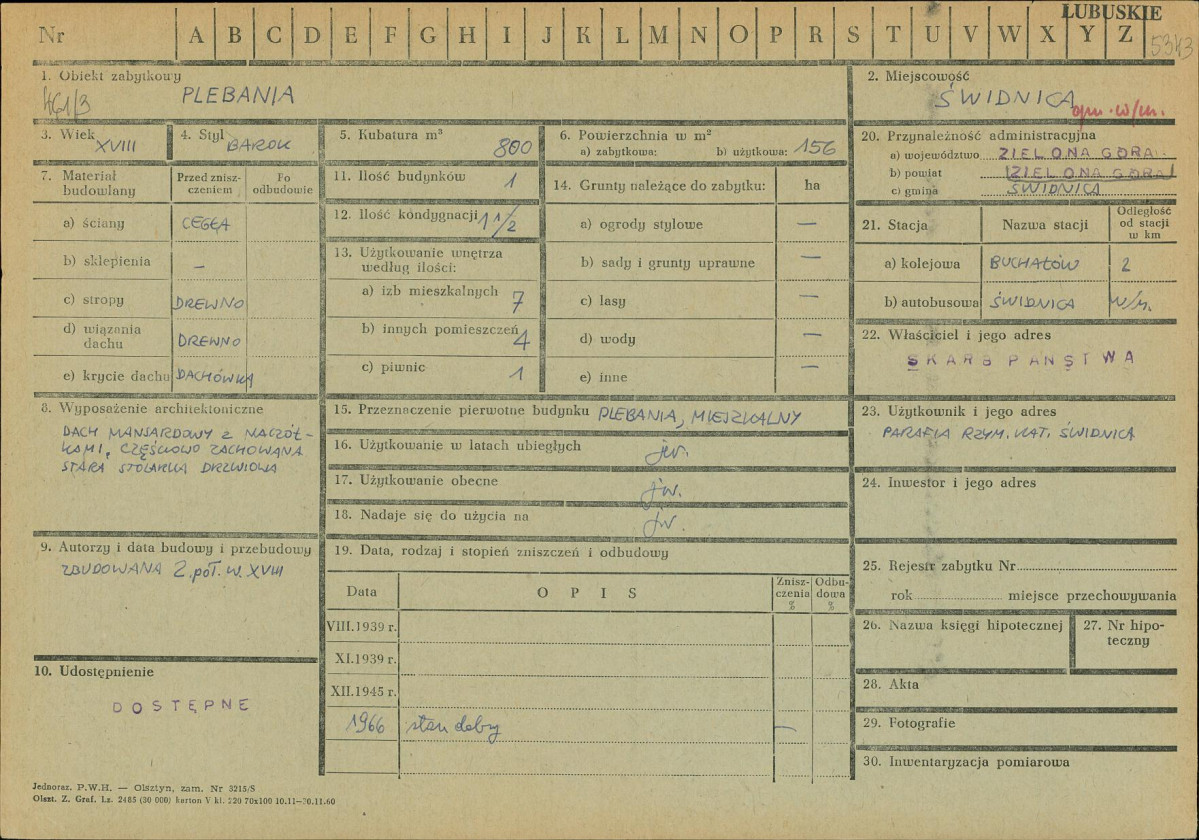 LUBUSKIE
Nr A B C D E F G H I J K L M N O P R S T U V W X Y Z 5343
1. Obiekt zabytkowy
461/3 PLEBANIA
2. Miejscowość
ŚWIDNICA
gm. w/m.
3. Wiek XVIII
4. Styl BAROK
5. Kubatura m³ 800
6. Powierzchnia w m²
a) zabytkowa: b) użytkowa: 156
7. Materiał budowlany
Przed zniszczeniem
Po odbudowie
a) ściany CEGŁA
b) sklepienia —
c) stropy DREWNO
d) wiązania dachu DREWNO
e) krycie dachu DACHÓWKA
8. Wyposażenie architektoniczne
DACH MANSARDOWY Z NACZÓŁ-
KAMI, CZĘŚCIOWO ZACHOWANA
STARA STOLARKA DRZWIOWA
9. Autorzy i data budowy i przebudowy
ZBUDOWANA 2. poł. w. XVIII
10. Udostępnienie
DOSTĘPNE
11. Ilość budynków 1
12. Ilość kondygnacji 1 1/2
13. Użytkowanie wnętrza
według ilości:
a) izb mieszkalnych 7
b) innych pomieszczeń 4
c) piwnic 1
14. Grunty należące do zabytku: ha
a) ogrody stylowe —
b) sady i grunty uprawne —
c) lasy —
d) wody —
e) inne —
15. Przeznaczenie pierwotne budynku PLEBANIA, MIESZKALNY
16. Użytkowanie w latach ubiegłych jw.
17. Użytkowanie obecne jw.
18. Nadaje się do użycia na jw.
19. Data, rodzaj i stopień zniszczeń i odbudowy
Data O P I S Zniszczenia % Odbudowa %
VIII.1939 r.
XI.1939 r.
XII.1945 r.
1966 stan dobry —
20. Przynależność administracyjna
a) województwo ZIELONA GÓRA
b) powiat ZIELONA GÓRA
c) gmina ŚWIDNICA
21. Stacja Nazwa stacji Odległość od stacji w km
a) kolejowa BUCHAŁÓW 2
b) autobusowa ŚWIDNICA w/m.
22. Właściciel i jego adres
SKARB PAŃSTWA
23. Użytkownik i jego adres
PARAFIA RZYM. KAT. ŚWIDNICA
24. Inwestor i jego adres
25. Rejestr zabytku Nr
rok miejsce przechowywania
26. Nazwa księgi hipotecznej
27. Nr hipoteczny
28. Akta
29. Fotografie
30. Inwentaryzacja pomiarowa
Jednoraz. P.W.H. — Olsztyn, zam. Nr 3215/S
Olszt. Z. Graf. Lz. 2485 (30 000) karton V kl. 220 70x100 10.11—30.11.60